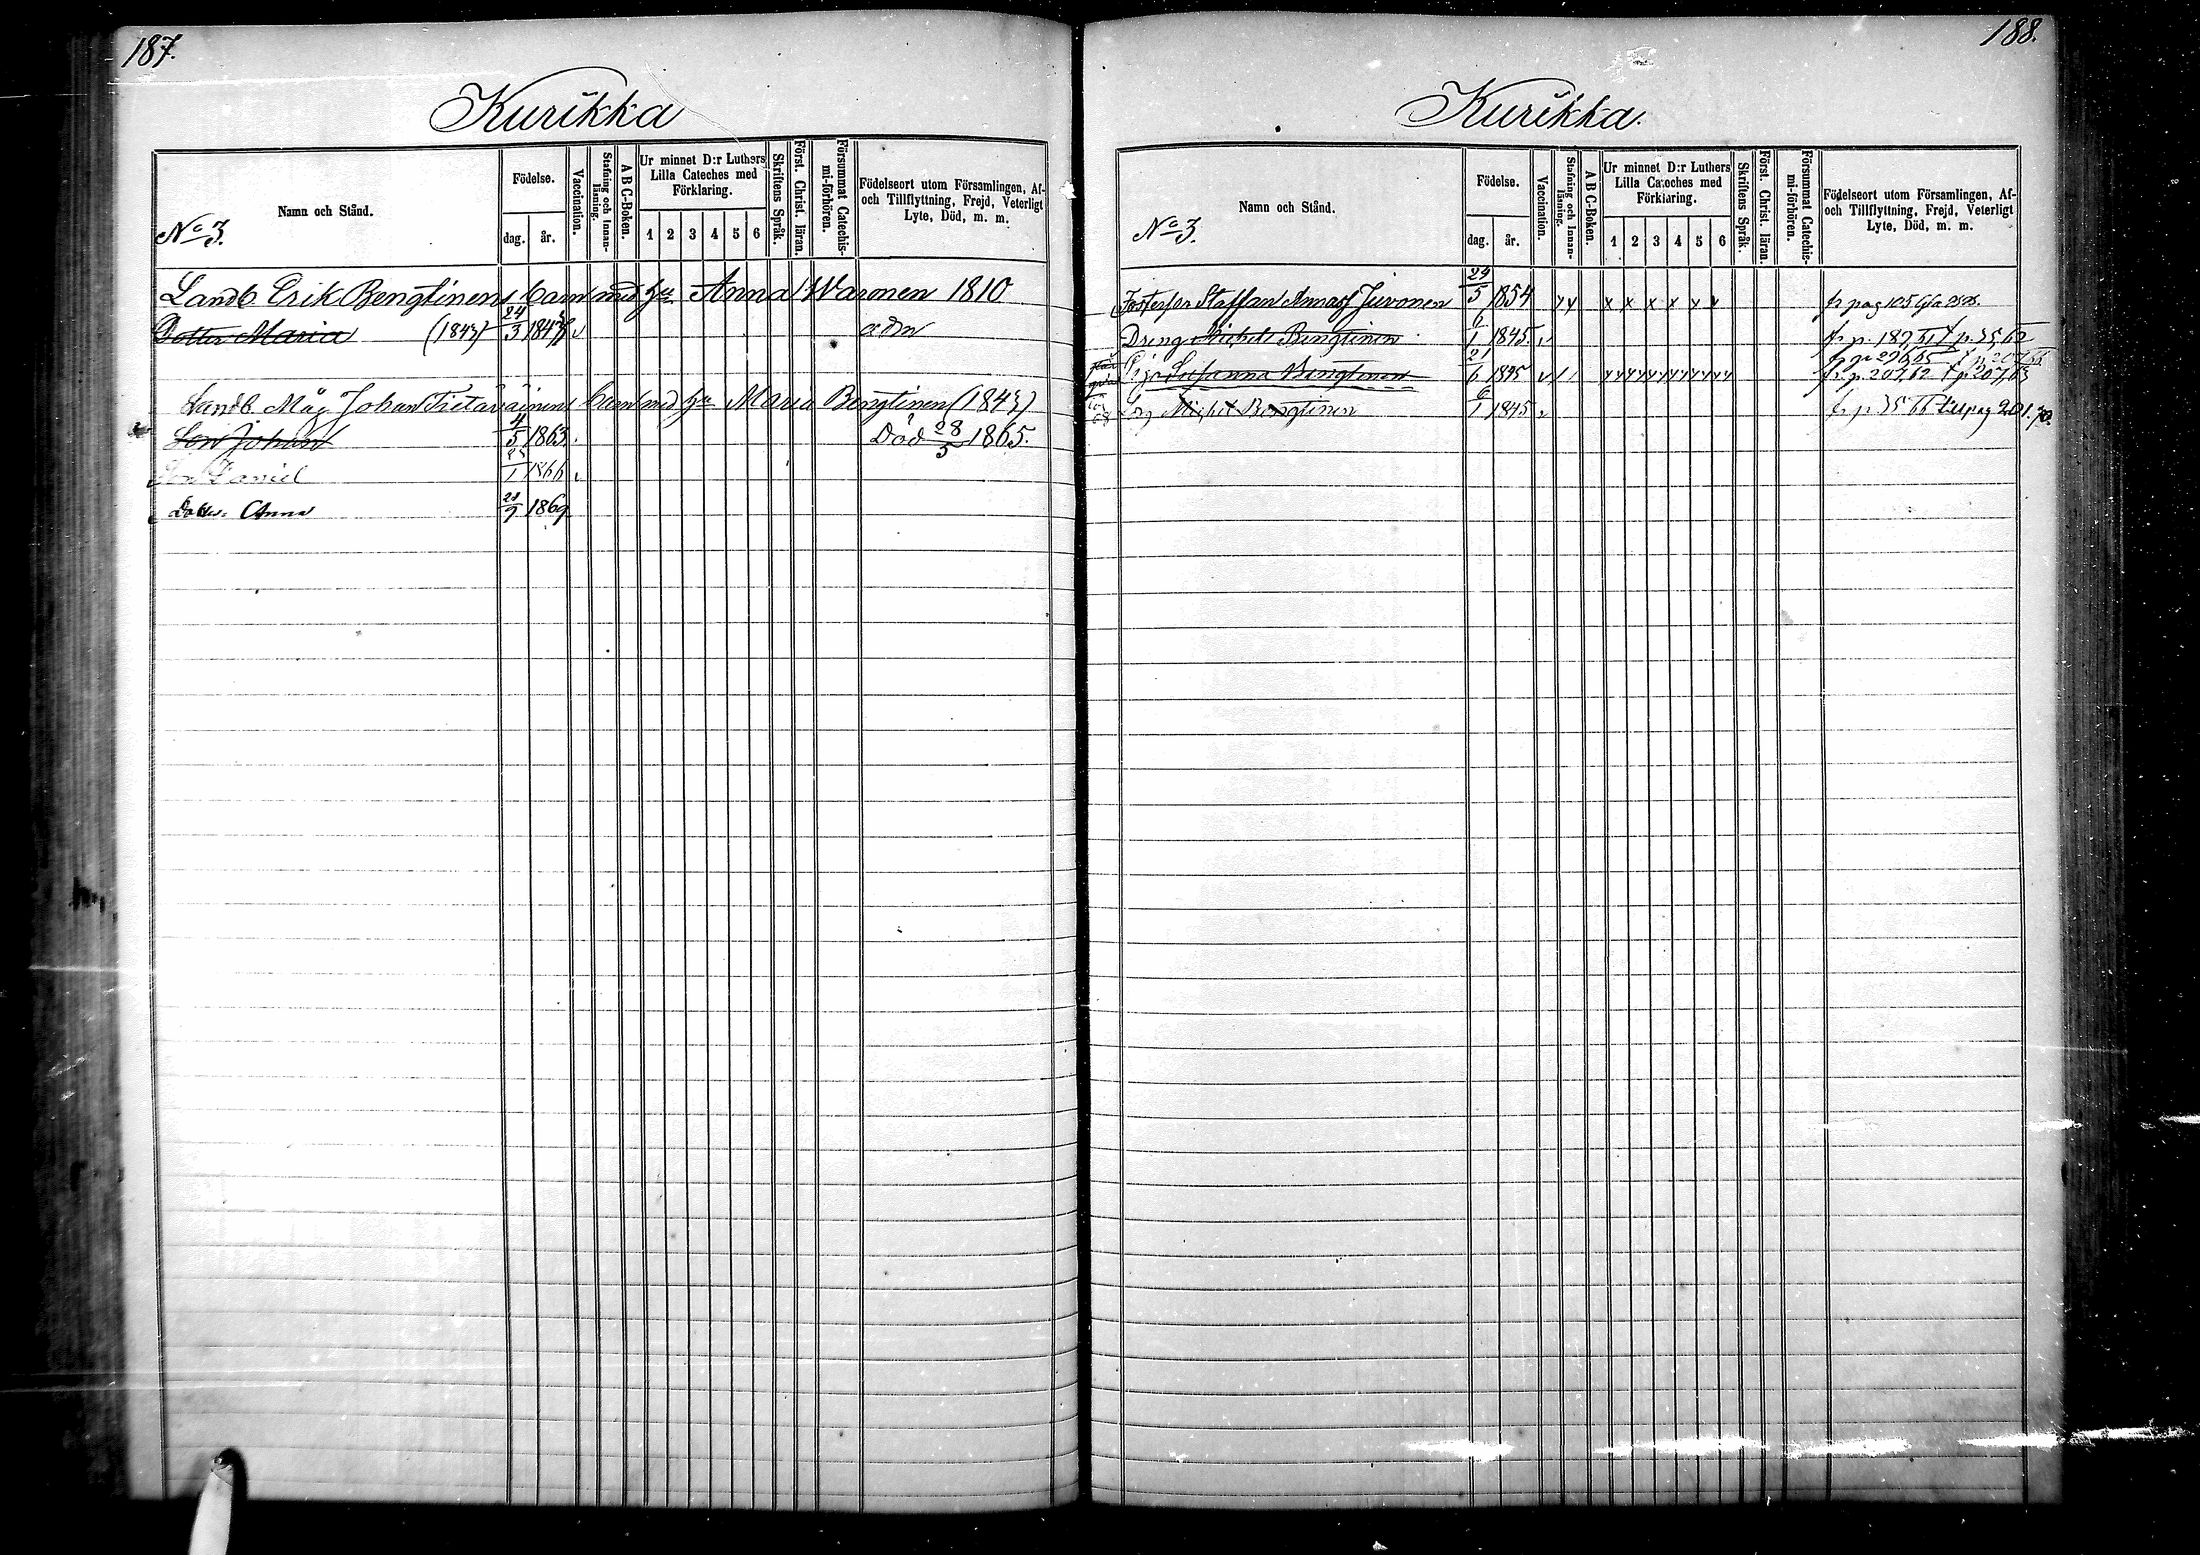 187.
Kurikka
No 3.
Namn och Stånd.
Födelse.
dag. år.
Vaccination.
Stafning och Innan-läsning.
A B C-Boken.
Ur minnet D:r Luthers Lilla Cateches med Förklaring.
1 2 3 4 5 6
Skriftens Språk.
Först. Christ. läran.
Försummat Catechis-mi-förhören.
Födelseort utom Församlingen, Af- och Tillflyttning, Frejd, Veterligt Lyte, Död, m. m.
Landb. Erik Bengtinens barn med hu Anna Waronen 1810
Dotter Maria (1843) 24/3 1843 v
Landb. Måg Johan Tietäväinens barn med hu Maria Bengtinen (1843)
Son Johan 4/5 1863. Död 28/5 1865.
Son Daniel 1866 v
Dotter Anna 1869
188.
Kurikka.
No 3.
Namn och Stånd.
Födelse.
dag. år.
Vaccination.
Stafning och Innan-läsning.
A B C-Boken.
Ur minnet D:r Luthers Lilla Cateches med Förklaring.
1 2 3 4 5 6
Skriftens Språk.
Först. Christ. läran.
Försummat Catechis-mi-förhören.
Födelseort utom Församlingen, Af- och Tillflyttning, Frejd, Veterligt Lyte, Död, m. m.
Staffan Juvonen 24/5 1854 x x x x fr pag 105
Dreng Michel Bengtinen 6/1 1845. v
Susanna Bengtinen 21/6 1845
Michel Bengtinen 6/1 1845 v fr p. 35 66 till pag 201. 70.